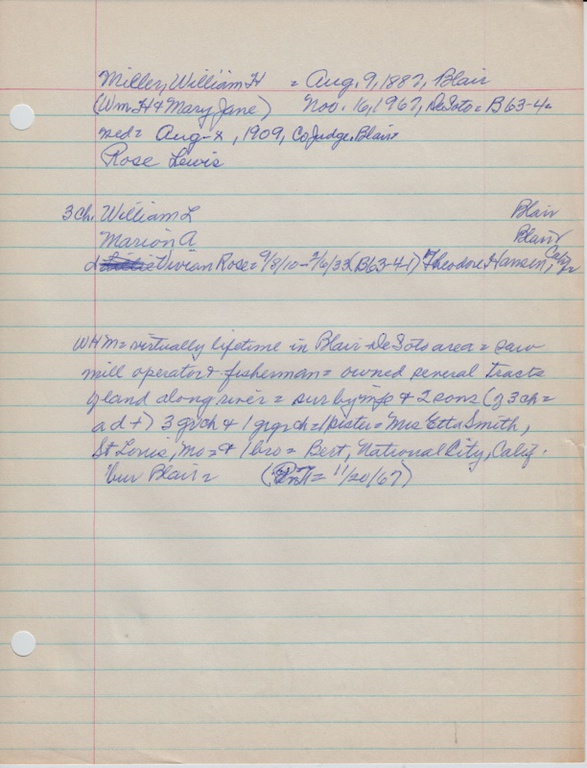 Miller, William H = Aug. 9, 1887, Blair
(Wm. H & Mary Jane) Nov. 16, 1967, DeSoto = B63-4=
med = Aug - x, 1909, Co Judge. Blair =
Rose Lewis
3 ch. William L Blair
Marion A Blair
d Vivian Rose = 9/8/10 - 2/6/33 (B63-4-1) Theodore Hansen, Calif
WHM = virtually lifetime in Blair - DeSoto area = saw
mill operator & fisherman = owned several tracts
of land along river = sur by wife & 2 sons (of 3 ch =
a d +) 3 grch & 1 grgrch = 1 sister = Mrs Etta Smith,
St Louis, Mo = & 1 bro = Bert, National City, Calif.
bur Blair = ( = 11/20/67)